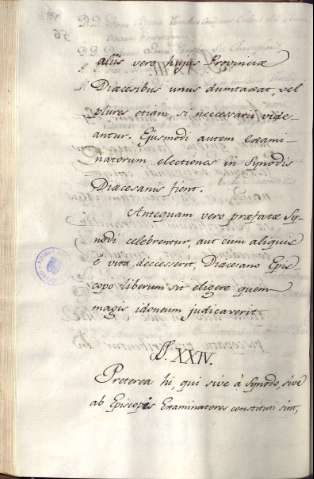 aliis vero hujus Provinciæ
Diæcesibus unus dumtaxat, vel
plures etiam, si necessarii vide-
antur. Ejusmodi autem Exami-
natorum electiones in Synodis
Diæcesanis fient.
Antequam vero præfatæ Sy-
nodi celebrentur, aut cum aliquis
è vita decesserit, Diæcesano Epis-
copo liberum sit eligere quem
magis idoneum judicaverit.
§. XXIV.
Preterea hi, qui sive à Synodo, sive
ab Episcopis Examinatores constituti sint,